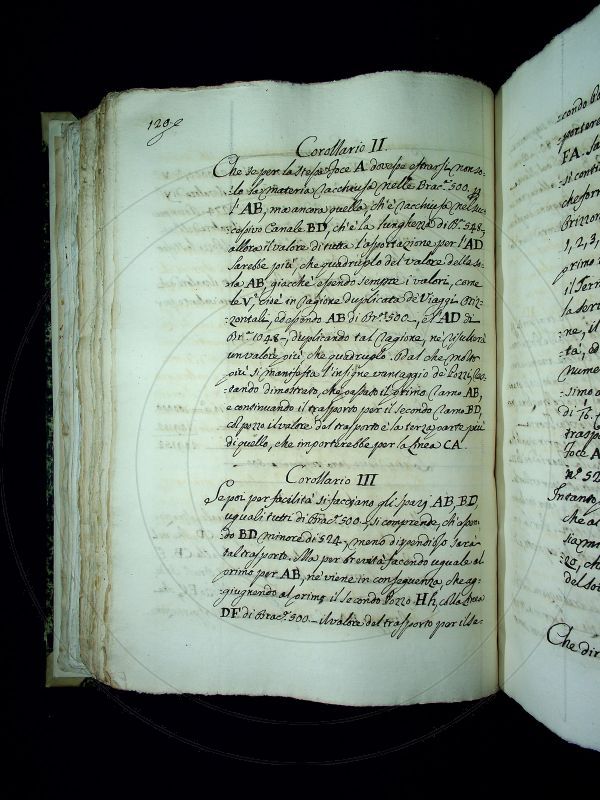 129
Corollario II.
Che se per la stessa foce A dovesse estrarsi non so-
lo la materia racchiusa nelle Brac.ª 500.
l'AB, ma ancora quella, ch'è racchiusa nel suc-
cessivo Canale BD, ch'è la lunghezza di Br.ª 548,
allora il valore di tutta l'asportazione per l'AD
sarebbe più, che quadruplo del valore della so-
la AB, giacchè essendo sempre i valori, come
le V.e cioè in ragione duplicata de' Viaggi Oriz-
zontali, ed essendo AB di Br.ª 500, e l'AD di
Br.ª 1048, duplicando tal ragione, ne risulterà
un valore più, che quadruplo. Dal che molto
più si manifesta l'insigne vantaggio de' Pozzi, res-
tando dimostrato, che passato il primo ramo AB,
e continuando il trasporto per il secondo ramo BD,
col pozzo il valore del trasporto è la terza parte più
di quello, che importerebbe per la linea CA.
Corollario III
Se poi per facilità si facciano gli spazj AB, BD
uguali tutti di Brac.ª 500, si comprende, ch'essen-
do BD minore di 524, meno dispendioso sarà
tal trasporto. Ma per brevità facendo uguale al
primo per AB, ne viene in conseguenza, che ag-
giugnendo al primo il secondo Pozzo Hh, colla
DF di Brac.ª 500 il valore del trasporto per il se-
condo
FA.
1, 2, 3,
primo
il Terz
ne, il
ta, ed
Nume
simo
di
trasp
foce A
n.º 52
Intanto
che al
ra, ch
del so
Che dir